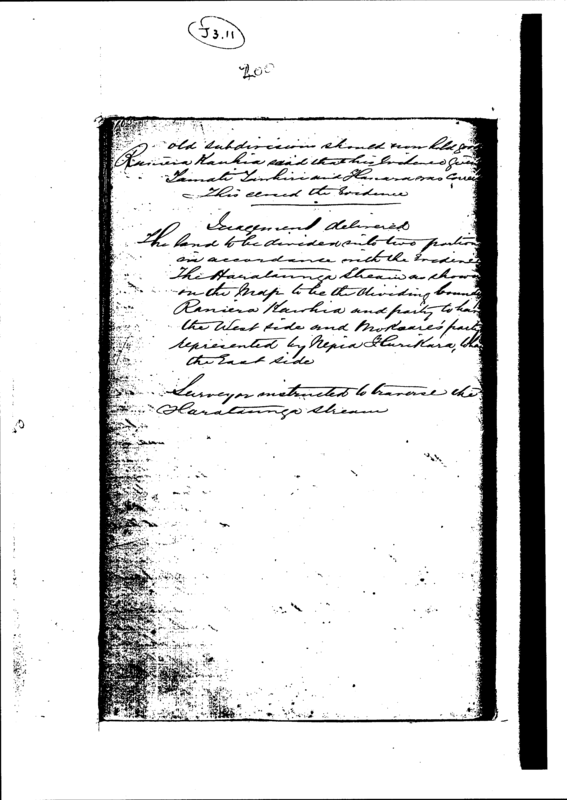 J3.11
200
old subdivision should now hold good
Raniera Kawhia said that his Evidence given
Tamati and Hanara was Correct
This closed the Evidence
Judgement delivered
The land to be divided into two portions
in accordance with the Evidence
The Harataunga Stream as shown
on the Map to be the dividing boundary
Raniera Kawhia and party to have
the West side and party
represented by Nepia Hurikara,
the East side
Surveyor instructed to traverse the
Harataunga stream